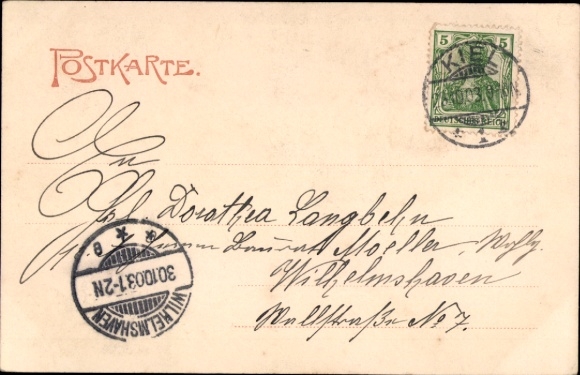 POSTKARTE.
5 5
DEUTSCHES REICH
KIEL
An
Frl. Dorothea Langbehn
Baurat Moeller, Wohlg.
Wilhelmshaven
Wallstraße No 7.
WILHELMSHAVEN
30.10.03.1-2N
* * e